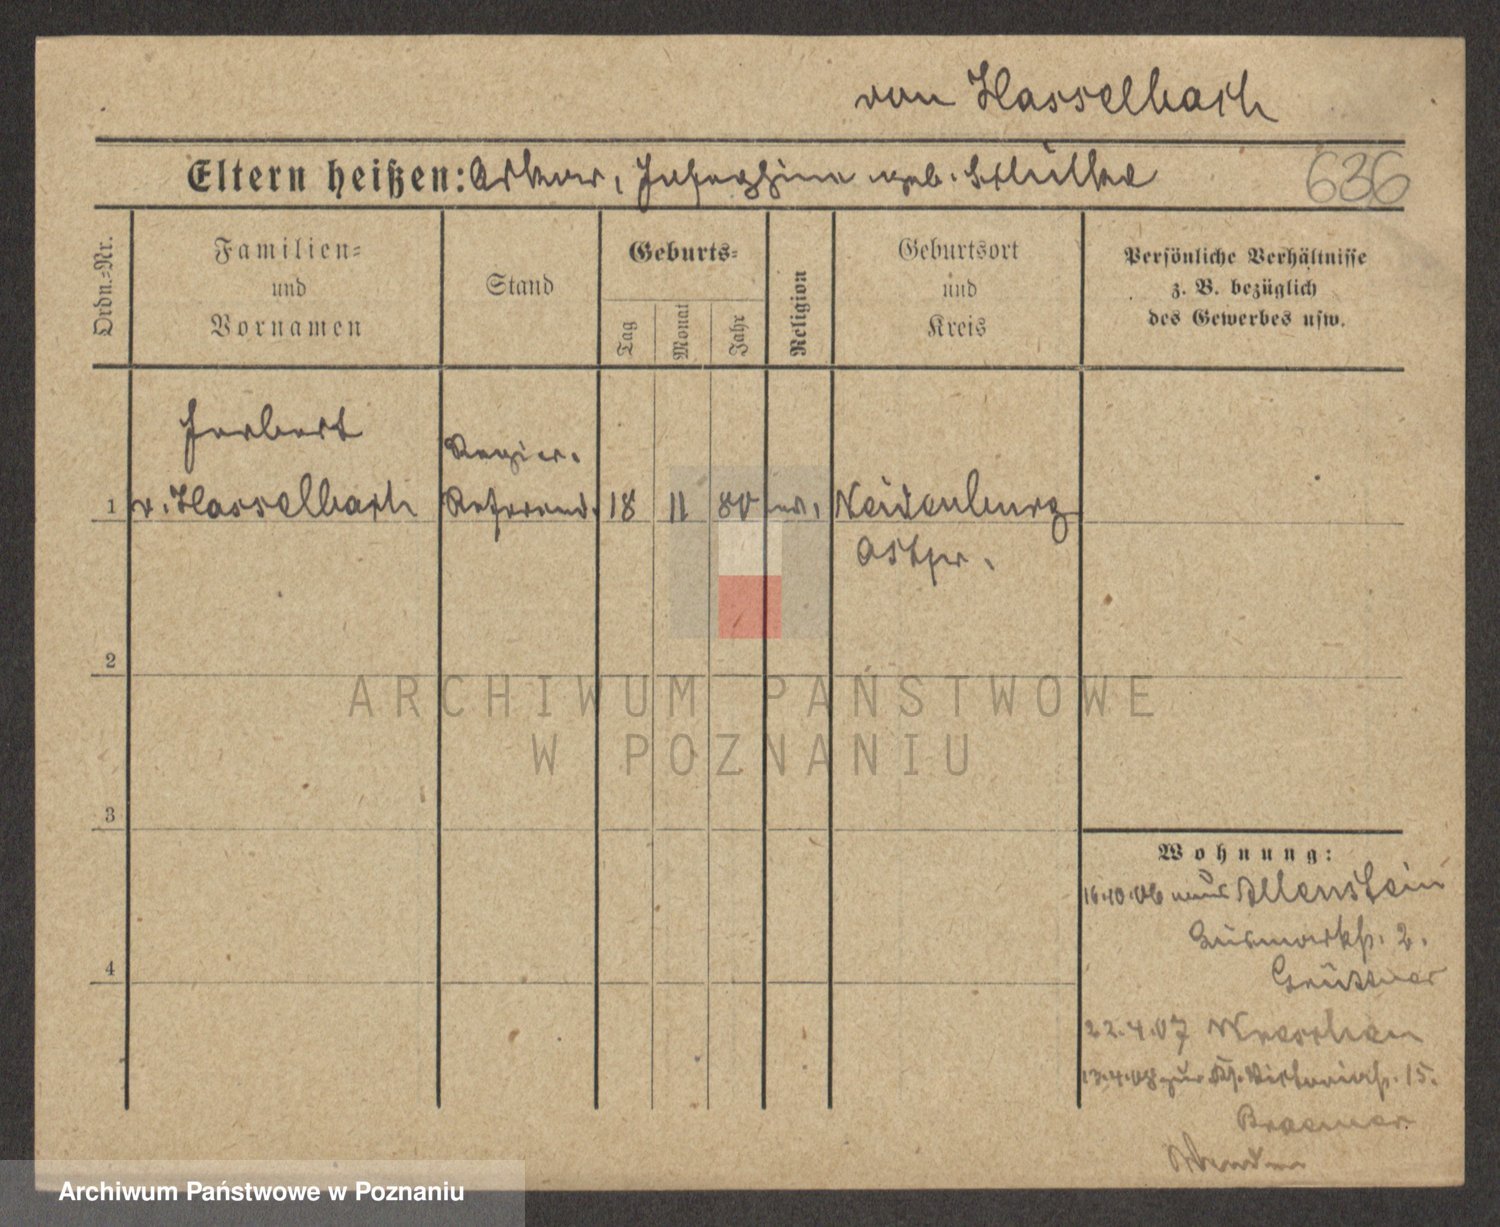 von Hasselbach
Eltern heißen: Oskar, Josephine geb. Schülke
636
Ordn.-Nr.
Familien-
und
Vornamen
Stand
Geburts-
Tag
Monat
Jahr
Religion
Geburtsort
und
Kreis
Persönliche Verhältnisse
z. B. bezüglich
des Gewerbes usw.
Herbert
Regier.
1 v. Hasselbach Referend. 18 11 80 ev. Neidenburg
Ostpr.
2
ARCHIWUM PAŃSTWOWE
W POZNANIU
3
Wohnung:
16.10.06 aus Allenstein
Bismarckstr. 2.
Grüttner
4
22.4.07 Wreschen
13.4.08 zur Kg. Victoriastr. 15.
Archiwum Państwowe w Poznaniu